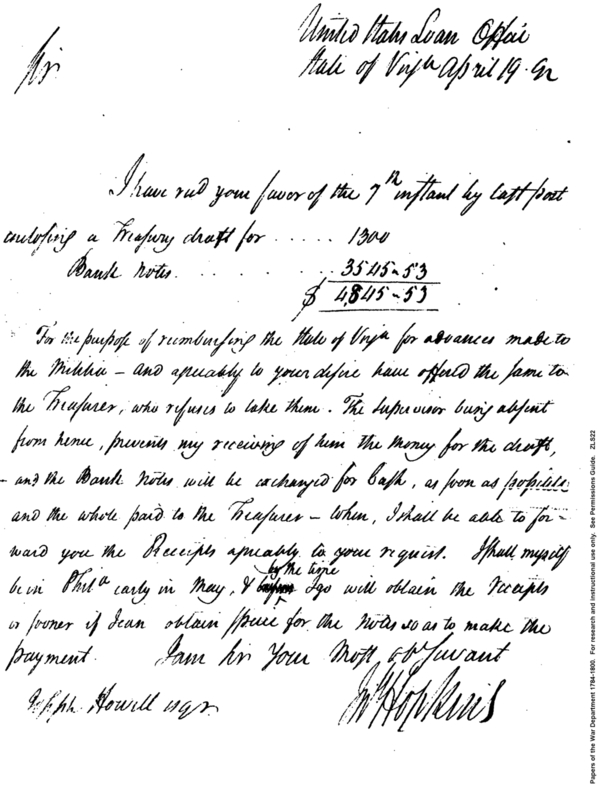 United States Loan Office
State of Virga April 19. 92
Sir
I have recd your favor of the 7th instant by last post
enclosing a Treasury draft for ..... 1300
Bank Notes. . . . . . . . . 3545-53
$ 4,845-53
For the purpose of reimbursing the State of Virga for advances made to
the Militia – and agreeably to your desire have offered the same to
the Treasurer, who refuses to take them. The Supervisor being absent
from hence, prevents my receiving of him the Money for the draft,
– and the Bank Notes will be exchanged for Cash, as soon as possible
and the whole paid to the Treasurer – When, I shall be able to for-
ward you the Receipts agreeably to your request. I shall myself
be in Phila early in May, & by the time I go will obtain the receipts
or sooner if I can obtain specie for the Notes so as to make the
payment. I am Sir Your Most ob Servant
Jn Hopkins
Joseph Howell esqr.
Papers of the War Department 1784-1800. For research and instructional use only. See Permissions Guide. ZLS22